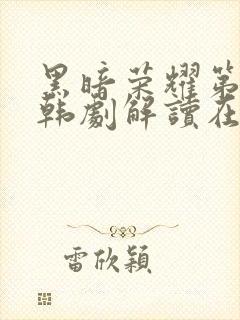 黑暗荣耀第
韩劇解讀在
雷欣穎